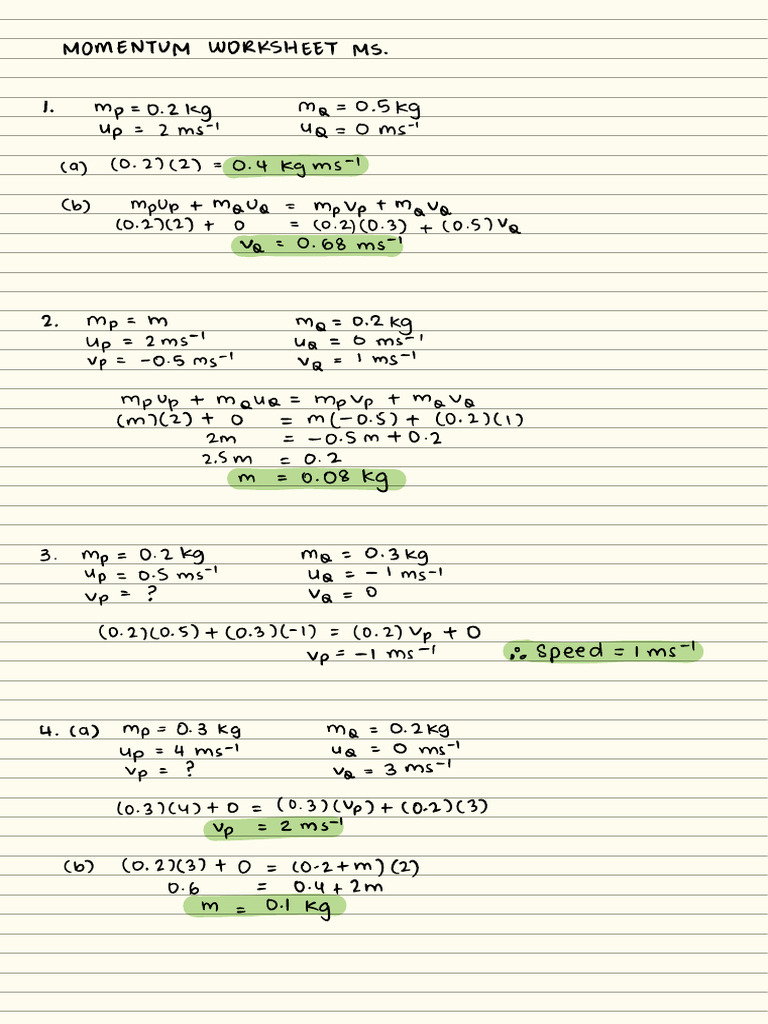 MOMENTUM WORKSHEET MS.
1. mp = 0.2 kg mQ = 0.5 kg
up = 2 ms⁻¹ uQ = 0 ms⁻¹
(a) (0.2)(2) = 0.4 kg ms⁻¹
(b) mpup + mQuQ = mpvp + mQvQ
(0.2)(2) + 0 = (0.2)(0.3) + (0.5)vQ
vQ = 0.68 ms⁻¹
2. mp = m mQ = 0.2 kg
up = 2 ms⁻¹ uQ = 0 ms⁻¹
vp = -0.5 ms⁻¹ vQ = 1 ms⁻¹
mpup + mQuQ = mpvp + mQvQ
(m)(2) + 0 = m(-0.5) + (0.2)(1)
2m = -0.5m + 0.2
2.5m = 0.2
m = 0.08 kg
3. mp = 0.2 kg mQ = 0.3 kg
up = 0.5 ms⁻¹ uQ = -1 ms⁻¹
vp = ? vQ = 0
(0.2)(0.5) + (0.3)(-1) = (0.2)vp + 0
vp = -1 ms⁻¹ ∴ Speed = 1 ms⁻¹
4. (a) mp = 0.3 kg mQ = 0.2 kg
up = 4 ms⁻¹ uQ = 0 ms⁻¹
vp = ? vQ = 3 ms⁻¹
(0.3)(4) + 0 = (0.3)(vp) + (0.2)(3)
vp = 2 ms⁻¹
(b) (0.2)(3) + 0 = (0.2+m)(2)
0.6 = 0.4 + 2m
m = 0.1 kg